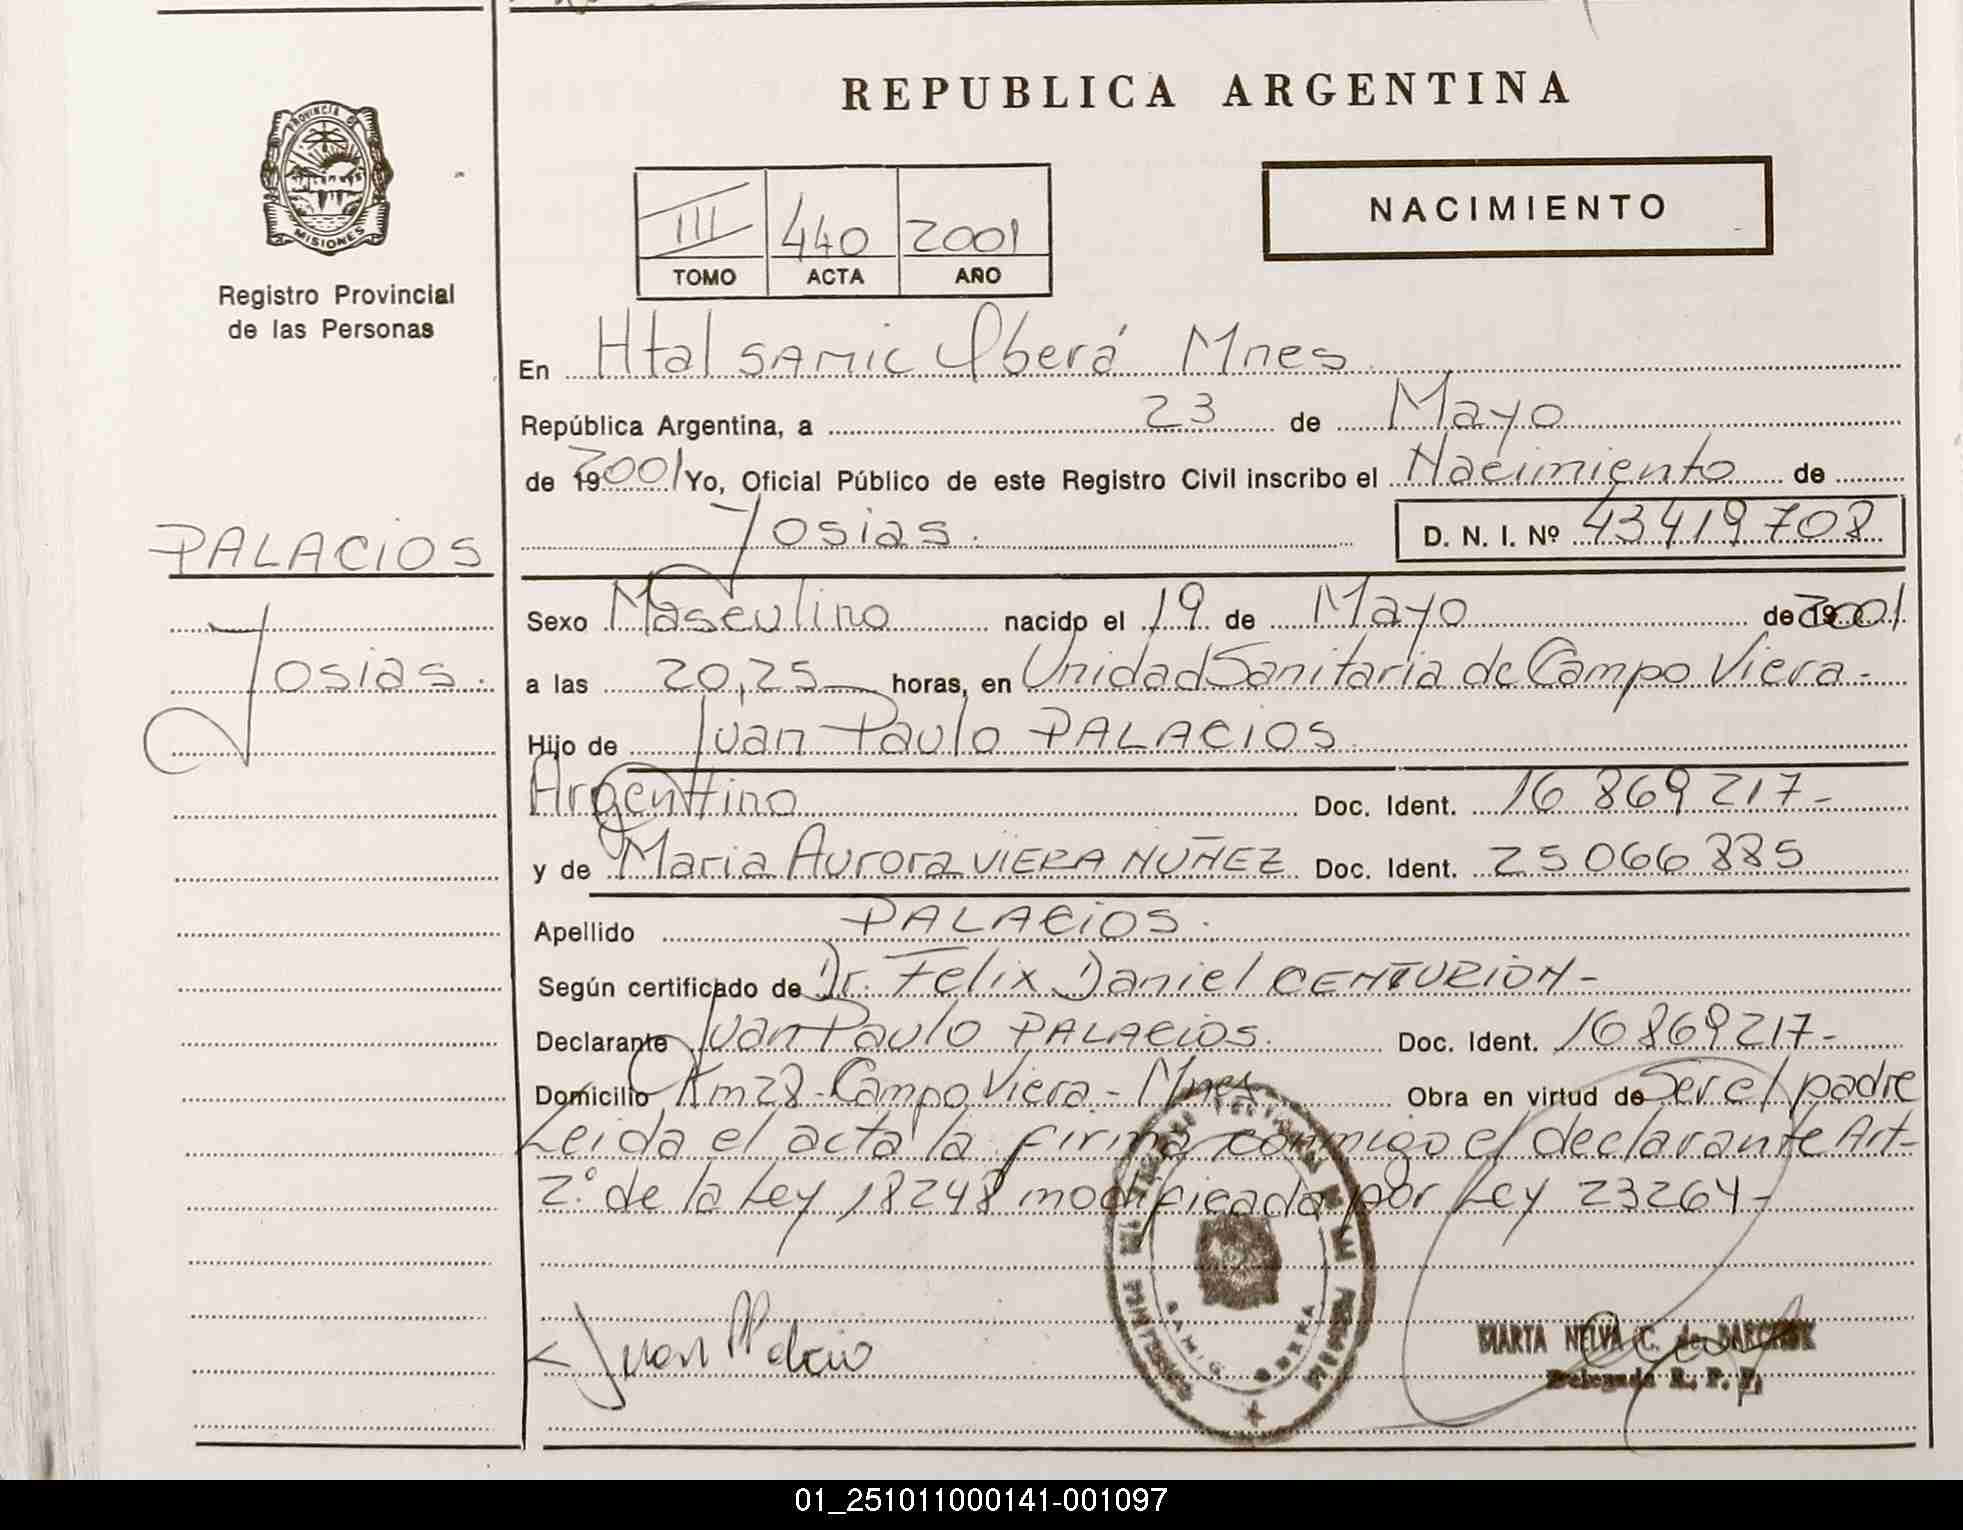 REPUBLICA ARGENTINA
PROVINCIA DE
MISIONES
Registro Provincial
de las Personas
III 440 2001
TOMO ACTA AÑO
NACIMIENTO
En Htal SAMIC Oberá Mnes
República Argentina, a 23 de Mayo
de 19 2001 Yo, Oficial Público de este Registro Civil inscribo el Nacimiento de
Josias. D. N. I. Nº 43419708
PALACIOS
Josias.
Sexo Masculino nacido el 19 de Mayo de 19 2001
a las 20,25 horas, en Unidad Sanitaria de Campo Viera -
Hijo de Juan Paulo PALACIOS
Argentino Doc. Ident. 16 869 217-
y de Maria Aurora VIERA NUÑEZ Doc. Ident. 25 066 885
Apellido PALACIOS.
Según certificado de Dr. Felix Daniel CENTURION-
Declarante Juan Paulo PALACIOS. Doc. Ident. 16 869 217-
Domicilio Km 28 - Campo Viera - Mnes Obra en virtud de Ser el padre
Leida el acta la firma conmigo el declarante Art-
2º de la Ley 18248 modificada por Ley 23264-
Juan P Palacio
MARTA NELVA C. de
Delegada R. P. P.
01_251011000141-001097